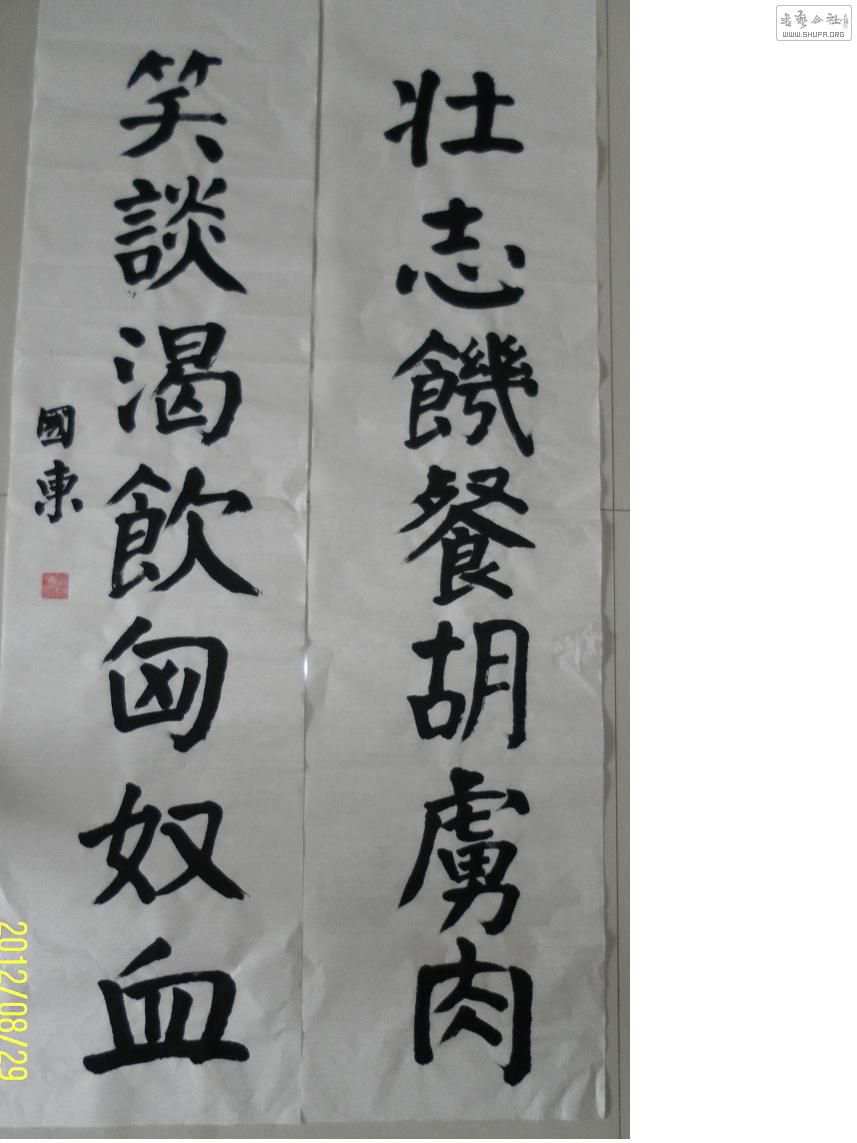 壮志饑餐胡虜肉
笑談渴飲匈奴血
國東
2012/08/29
书艺公社
WWW.SHUFA.ORG